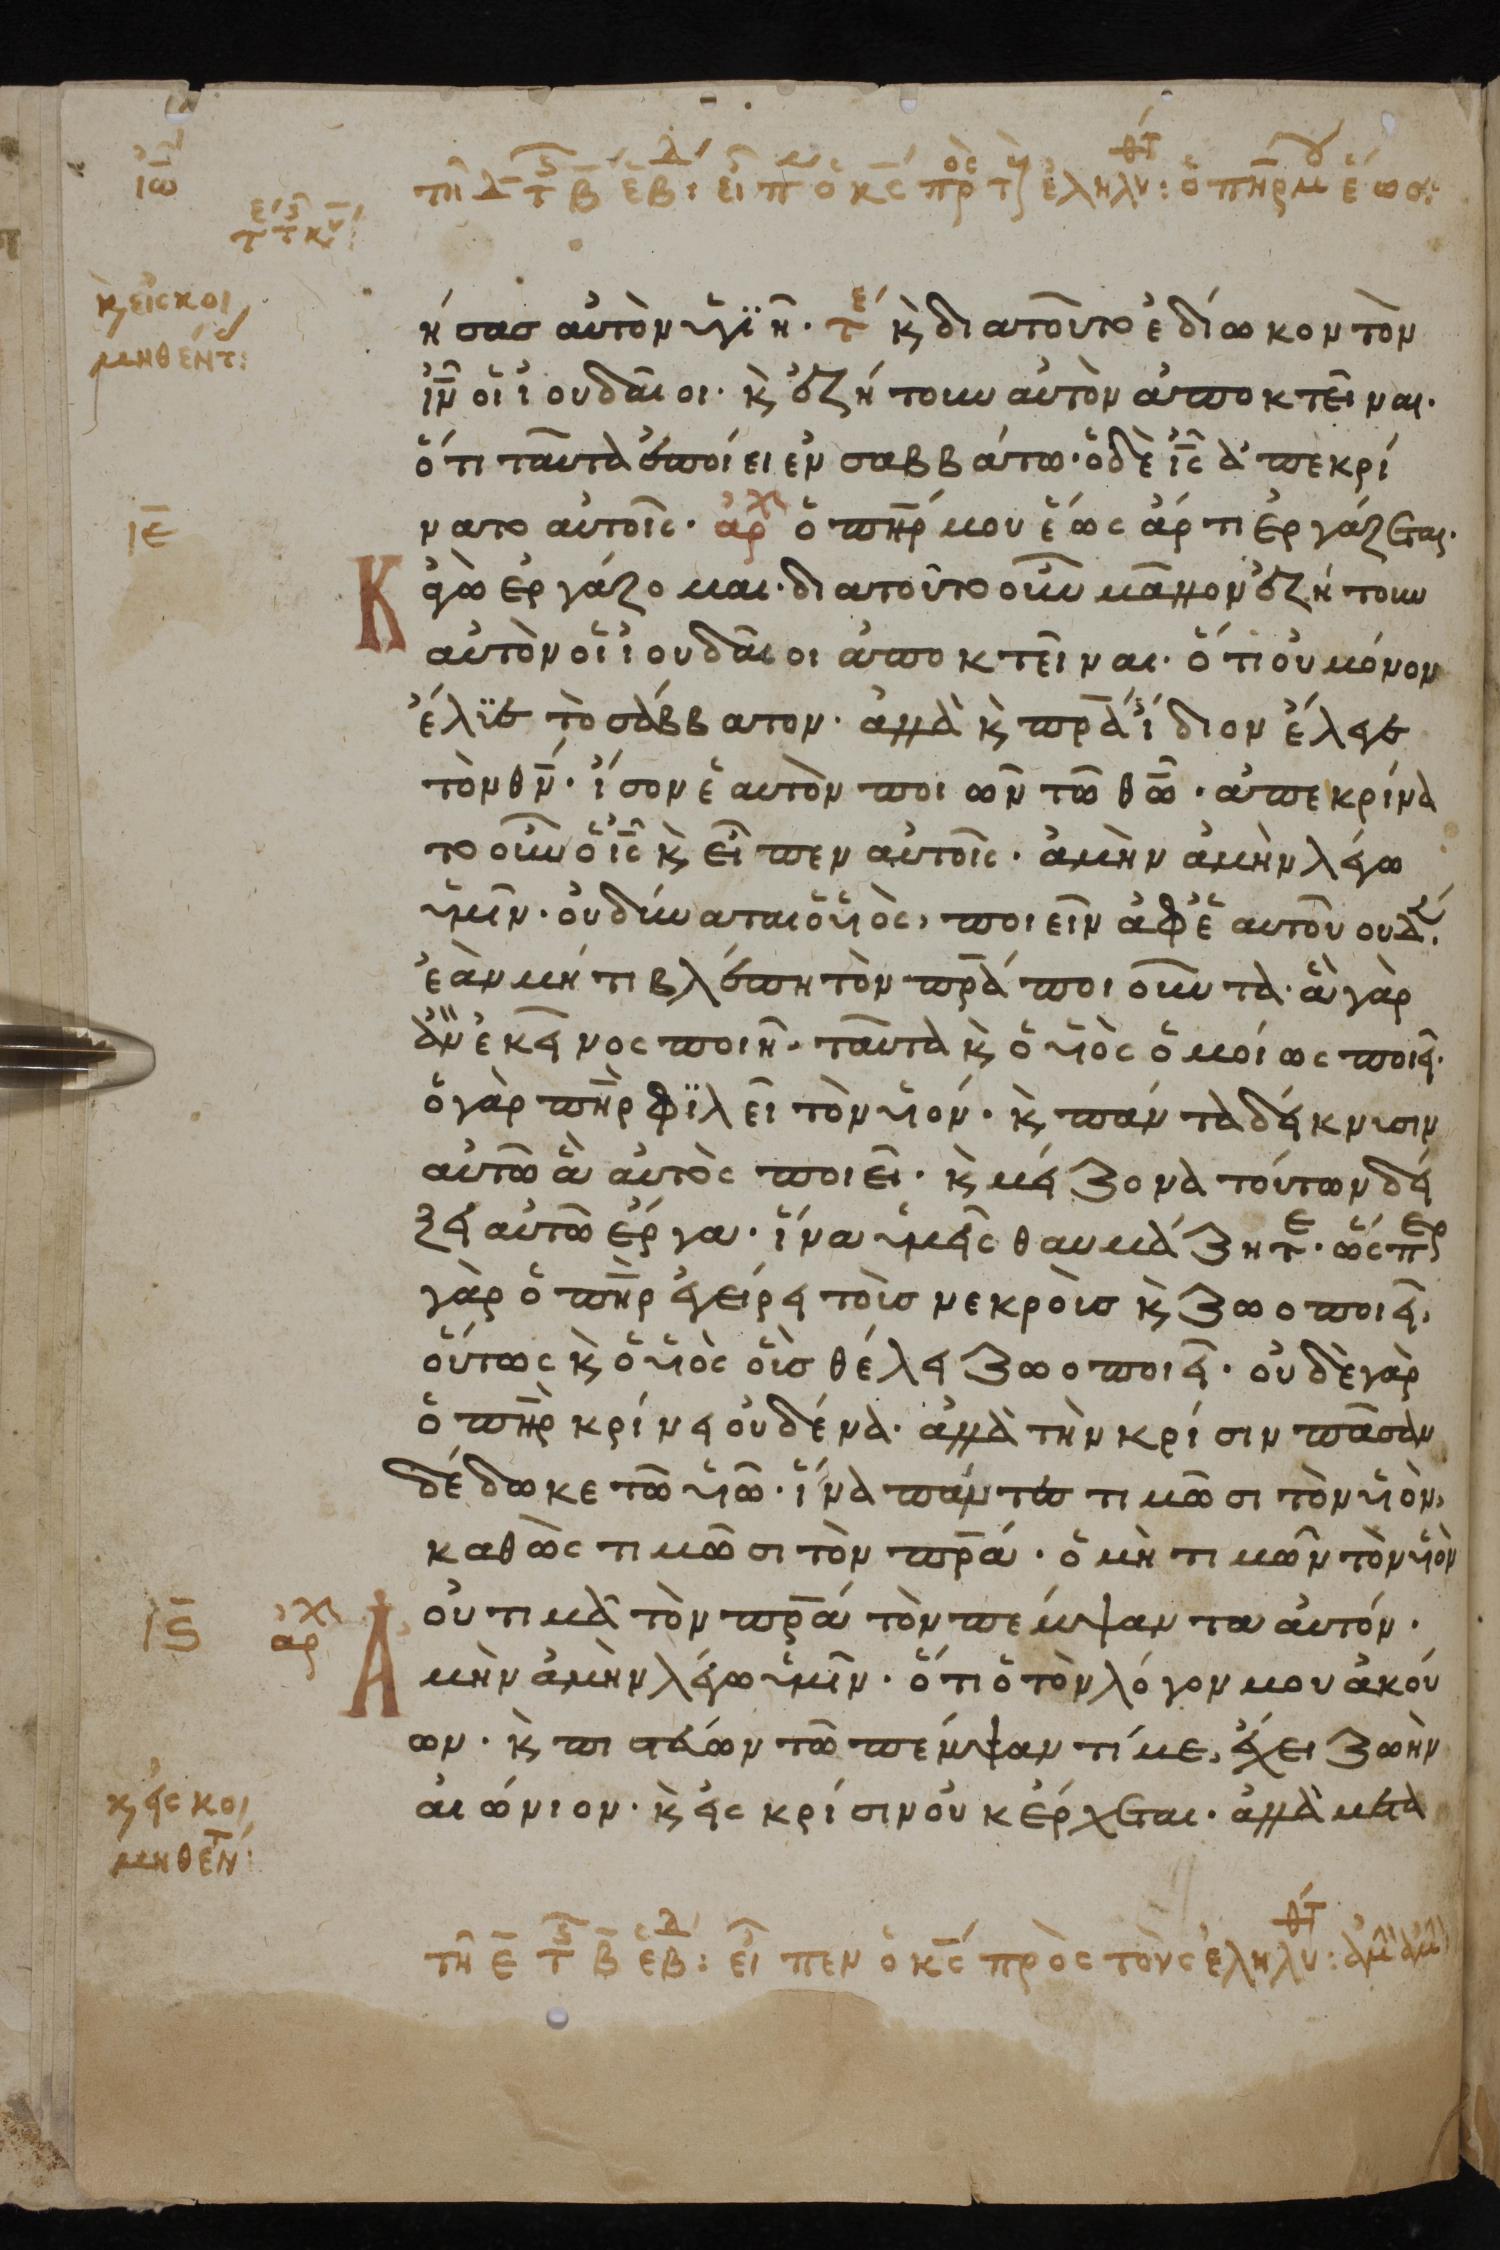 ἰω
τῆ δ τ ς β ἑβδ: εἶπ ὁ κς πρὸς τ ἐληλυθτ: ὁ πηρ μου ἕως:
κ εἰς κοι
μηθέντ:
ήσας αὐτὸν ὑγιῆ. τε κ διατοῦτο ἐδίωκον τὸν
ιν οἱ ἰουδαῖοι. κ ἐζήτουν αὐτὸν ἀποκτεῖναι.
ὅτι ταῦτα ἐποίει ἐν σαββάτω. ὁ δὲ ις ἀπεκρί
νατο αὐτοῖς. ἀρχ ὁ πηρ μου ἕως ἄρτι ἐργάζεται.
ιε
Κἀγὼ ἐργάζομαι. διατοῦτο οὖν μᾶλλον ἐζήτουν
αὐτὸν οἱ ἰουδαῖοι ἀποκτεῖναι. ὅτι οὐ μόνον
ἔλϋε τὸ σάββατον. ἀλλὰ κ πρα ἴδιον ἔλεγε
τὸν θν. ἴσον ἑαυτὸν ποιῶν τῶ θω. ἀπεκρίνα
το οὖν ὁ ις κ εἶπεν αὐτοῖς. ἀμὴν ἀμὴν λέγω
ὑμῖν. οὐ δύναται ὁ υἱὸς, ποιεῖν ἀφ' ἑαυτοῦ ουδέν.
ἐὰν μή τι βλέπη τὸν πρα ποιοῦντα. ἃ γὰρ
ἂν ἐκεῖνος ποιῆ. ταῦτα κ ὁ υἱὸς ὁμοίως ποιεῖ.
ὁ γὰρ πηρ φϊλεῖ τὸν υἱόν. κ πάντα δείκνυσιν
αὐτῶ ἃ αὐτὸς ποιεῖ. κ μείζονα τούτων δεί
ξει αὐτῶ ἔργα. ἵνα ὑμεῖς θαυμάζητε. ὥσπερ
γὰρ ὁ πηρ ἐγείρει τοὺσ νεκροὺσ κ ζωοποιεῖ,
οὕτως κ ὁ υἱὸς οὓσ θέλει ζωοποιεῖ. οὐδὲ γὰρ
ὁ πηρ κρίνει οὐδένα. ἀλλὰ τὴν κρίσιν πᾶσαν
δέδωκε τῶ υἱῶ. ἵνα πάντες τιμῶσι τὸν υἱὸν,
καθὼς τιμῶσι τὸν πρα. ὁ μὴ τιμῶν τὸν υἱὸν
οὐ τιμᾶ τὸν πρα τὸν πέμψαντα αὐτόν.
ις ἀρχ
Ἀμὴν ἀμὴν λέγω ὑμῖν. ὅτι ὁ τὸν λόγον μου ἀκού
ων. κ πιστεύων τῶ πέμψαντί με, ἔχει ζωὴν
αἰώνιον. κ εἰς κρίσιν οὐκ ἔρχεται. ἀλλὰ μετα
κ εἰς κοι
μηθέντ:
τῆ ε τ ς β ἑβδ: εἶπεν ὁ κς πρὸς τοὺς ἐληλυθτ: ἀμ ἀμ